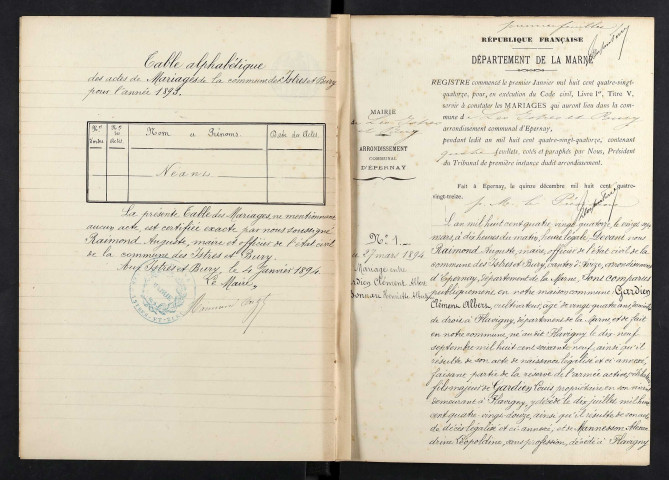 Table alphabétique
des actes de Mariages de la commune des Istres et Bury
pour l'année 1893.
Nos
Nos
des
Actes.
Nom & Prénoms.
Date des Actes.
Néant
La présente Table des Mariages, ne mentionnant
aucun acte, est certifiée exacte par nous soussigné
Raimond Auguste, maire et officier de l'état civil
de la commune des Istres et Bury.
Aux Istres et Bury, le 4 janvier 1894.
Le Maire,
première feuillet
RÉPUBLIQUE FRANÇAISE
DÉPARTEMENT DE LA MARNE
MAIRIE
Les Istres
et Bury
ARRONDISSEMENT
COMMUNAL
D'ÉPERNAY
REGISTRE commencé le premier Janvier mil huit cent quatre-vingt-
quatorze, pour, en exécution du Code civil, Livre Ier, Titre V,
servir à constater les MARIAGES qui auront lieu dans la com-
mune d Les Istres et Bury
arrondissement communal d'Epernay,
pendant ledit an mil huit cent quatre-vingt-quatorze, contenant
feuillets, cotés et paraphés par Nous, Président
du Tribunal de première instance dudit arrondissement.
Fait à Epernay, le quinze décembre mil huit cent quatre-
vingt-treize.
No 1.
27 mars 1894
Mariage entre
Gardien Clément Albert
L'an mil huit cent quatre-vingt-quatorze le vingt sept
mars, à dix heures du matin, heure légale, Devant nous
Raimond Auguste, maire, officier de l'état civil de la
commune des Istres et Bury, canton d'Avize, arrondissement
d'Epernay, département de la Marne, Sont comparus
publiquement en notre maison commune Gardien
Clément Albert, cultivateur, âgé de vingt quatre ans, domicilié
de droit à Flavigny, département de la Marne et de fait
en notre commune, né audit Flavigny le dix neuf
septembre mil huit cent soixante neuf, ainsi qu'il
résulte de son acte de naissance légalisé et ci-annexé,
faisant partie de la réserve de l'armée active,
fils majeur de Gardien Louis propriétaire en son vivant
demeurant à Flavigny, y décédé le dix juillet mil huit
cent quatre-vingt-douze, ainsi qu'il résulte de son acte
de décès légalisé et ci-annexé, et de Mannesson Alexan-
drine Léopoldine, sans profession, décédée à Flavigny